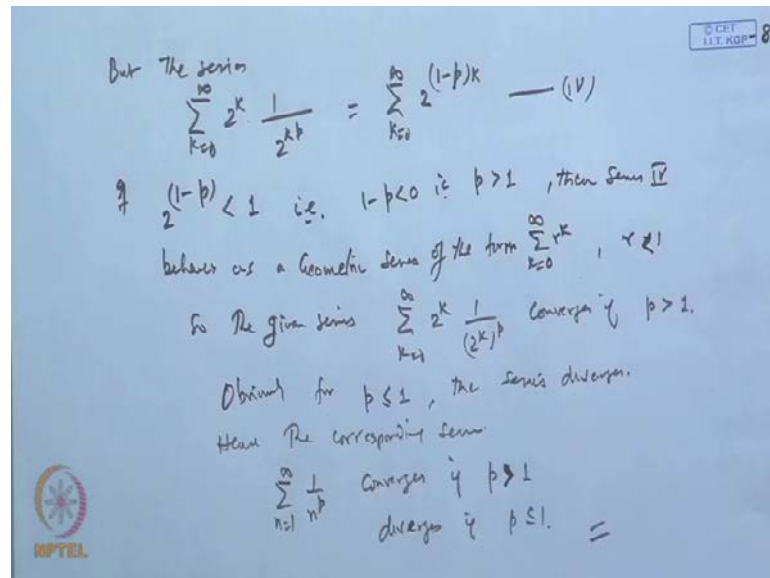 © CET
I.I.T. KGP - 8
But The series
∑_{k=0}^{∞} 2^k · 1/2^{kp} = ∑_{k=0}^{∞} 2^{(1-p)k} — (IV)
If 2^{(1-p)} < 1 i.e. 1-p<0 ie p>1, then Series IV
behaves as a Geometric Series of the form ∑_{k=0}^{∞} r^k, r<1
So The given series ∑_{k=0}^{∞} 2^k 1/(2^k)^p Converges if p>1.
Obviously for p≤1, the series diverges.
Hence The corresponding Series
∑_{n=1}^{∞} 1/n^p Converges if p>1
diverges if p≤1. =
NPTEL